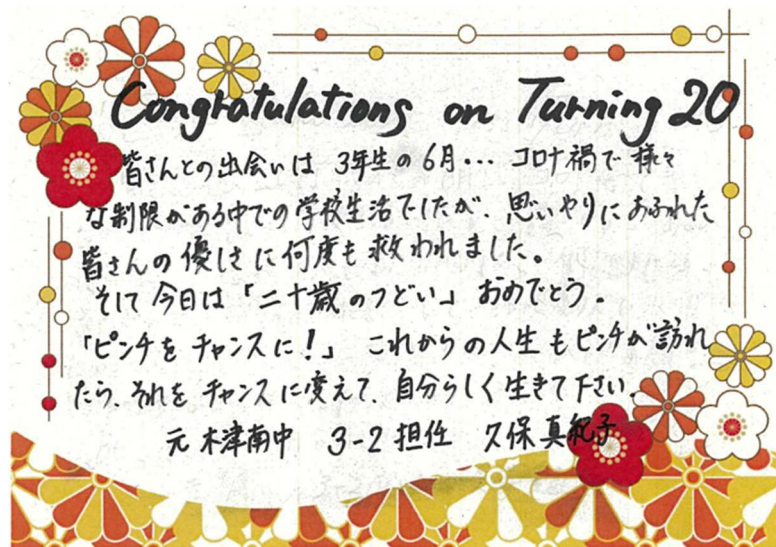 Congratulations on Turning 20
皆さんとの出会いは 3年生の6月… コロナ禍で様々
な制限がある中での学校生活でしたが、思いやりにあふれた
皆さんの優しさに何度も救われました。
そして今日は「二十歳のつどい」おめでとう。
「ピンチをチャンスに！」これからの人生もピンチが訪れ
たら、それをチャンスに変えて、自分らしく生きて下さい。
元木津南中 3-2担任 久保真紀子